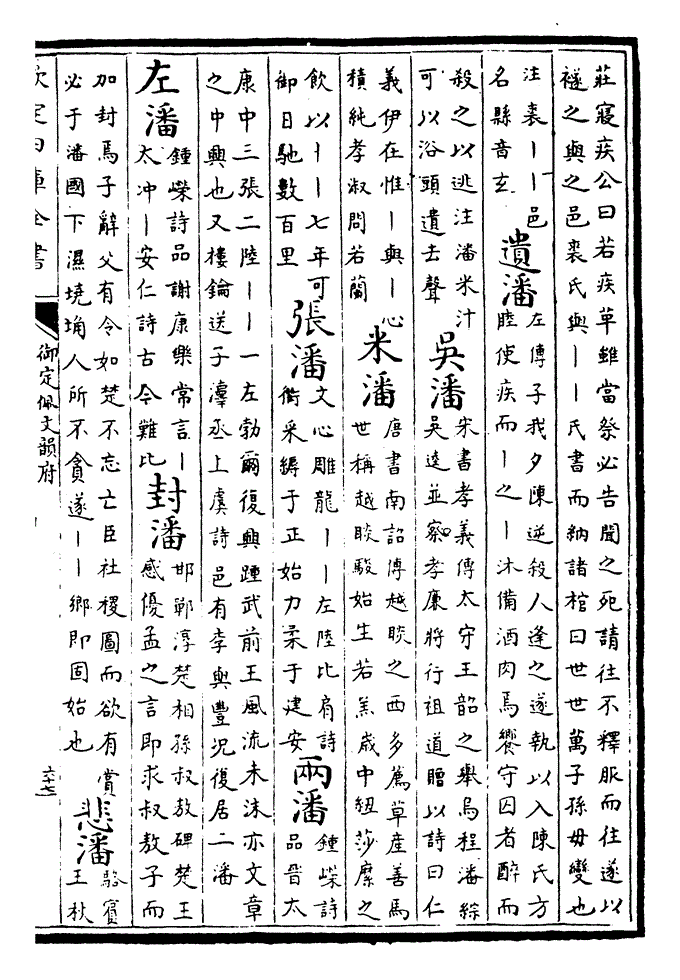 莊寢疾公曰若疾草雖當祭必告聞之死請往不釋服而往遂以
襚之與之邑裘氏與丨丨氏書而納諸棺曰世世萬子孫毋變也
注裘丨丨邑
名縣音玄
遺潘
左傳子我夕陳逆殺人逢之遂執以入陳氏方
睦使疾而丨之丨沐備酒肉焉饗守囚者醉而
殺之以逃注潘米汁
可以浴頭遺去聲
吳潘
宋書孝義傳太守王韶之舉烏程潘綜
吳逵並察孝廉將行祖道贈以詩曰仁
義伊在惟丨與丨心
積純孝淑問若蘭
米潘
唐書南詔傳越睒之西多薦草産善馬
世稱越睒駿始生若羔歲中紐莎縻之
飲以丨丨七年可
御日馳數百里
張潘
文心雕龍丨丨左陸比肩詩
衢采縟于正始力柔于建安
兩潘
鍾嶸詩
品晉太
康中三張二陸丨丨一左勃爾復興踵武前王風流未沫亦文章
之中興也又樓鑰送子丞上虞詩邑有李與豐況復居二潘
左潘
鍾嶸詩品謝康樂常言丨
太冲丨安仁詩古今難比
封潘
邯鄲淳楚相孫叔敖碑楚王
感優孟之言即求叔敖子而
加封焉子辭父有令如楚不忘亡臣社稷圖而欲有賞
必于潘國下濕墝埆人所不貪遂丨丨鄉即固始也
悲潘
駱賓
王秋
欽定四庫全書
御定佩文韻府
六十七